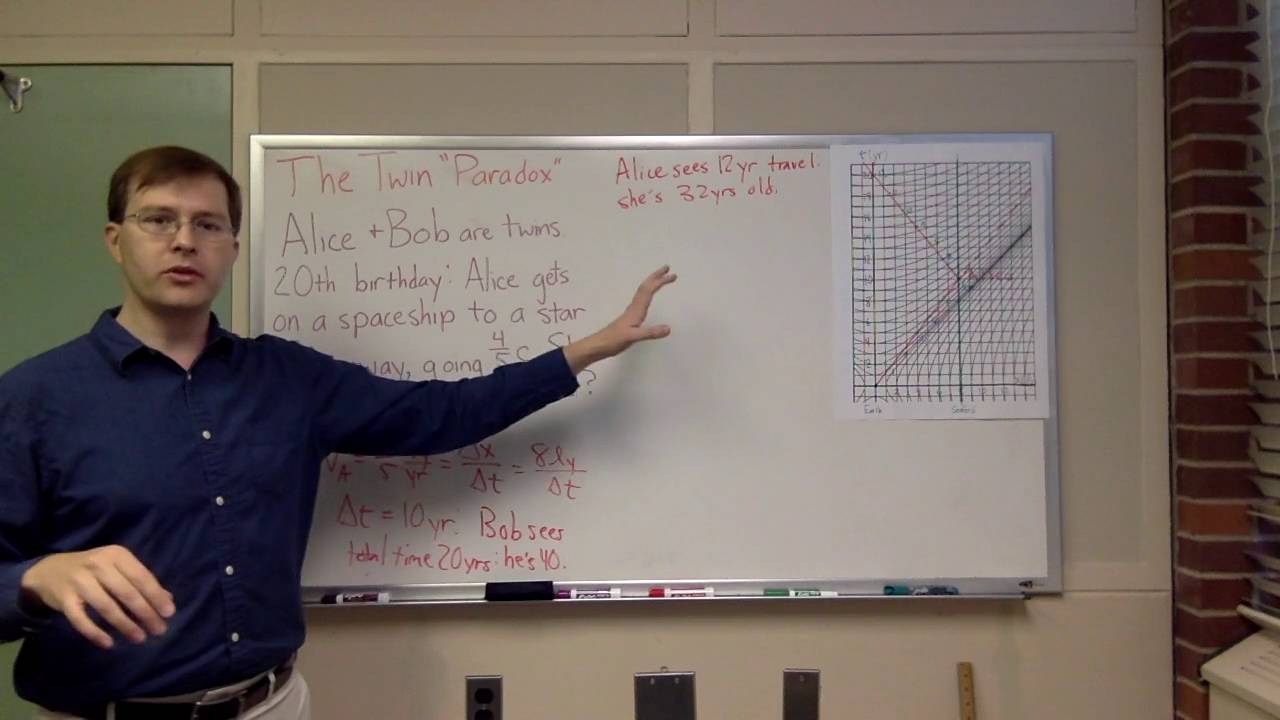 The Twin "Paradox"
Alice + Bob are twins
20th birthday: Alice gets
on a spaceship to a star
way, going 4/5 c.
?
V_A = 5 yr = Δx/Δt = 8ly/Δt
Δt = 10 yr: Bob sees
total time 20yrs: he's 40.
Alice sees 12 yr travel:
she's 32 yrs old.
t (yr)
Earth